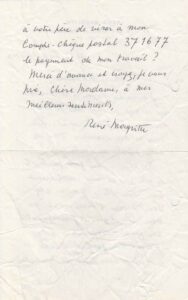 à votre père de virer à mon
Compte-chèque postal 371677
le payement de mon travail ?
Merci d'avance et croyez, je vous
prie, Chère Madame, à mes
meilleurs sentiments,
René Magritte